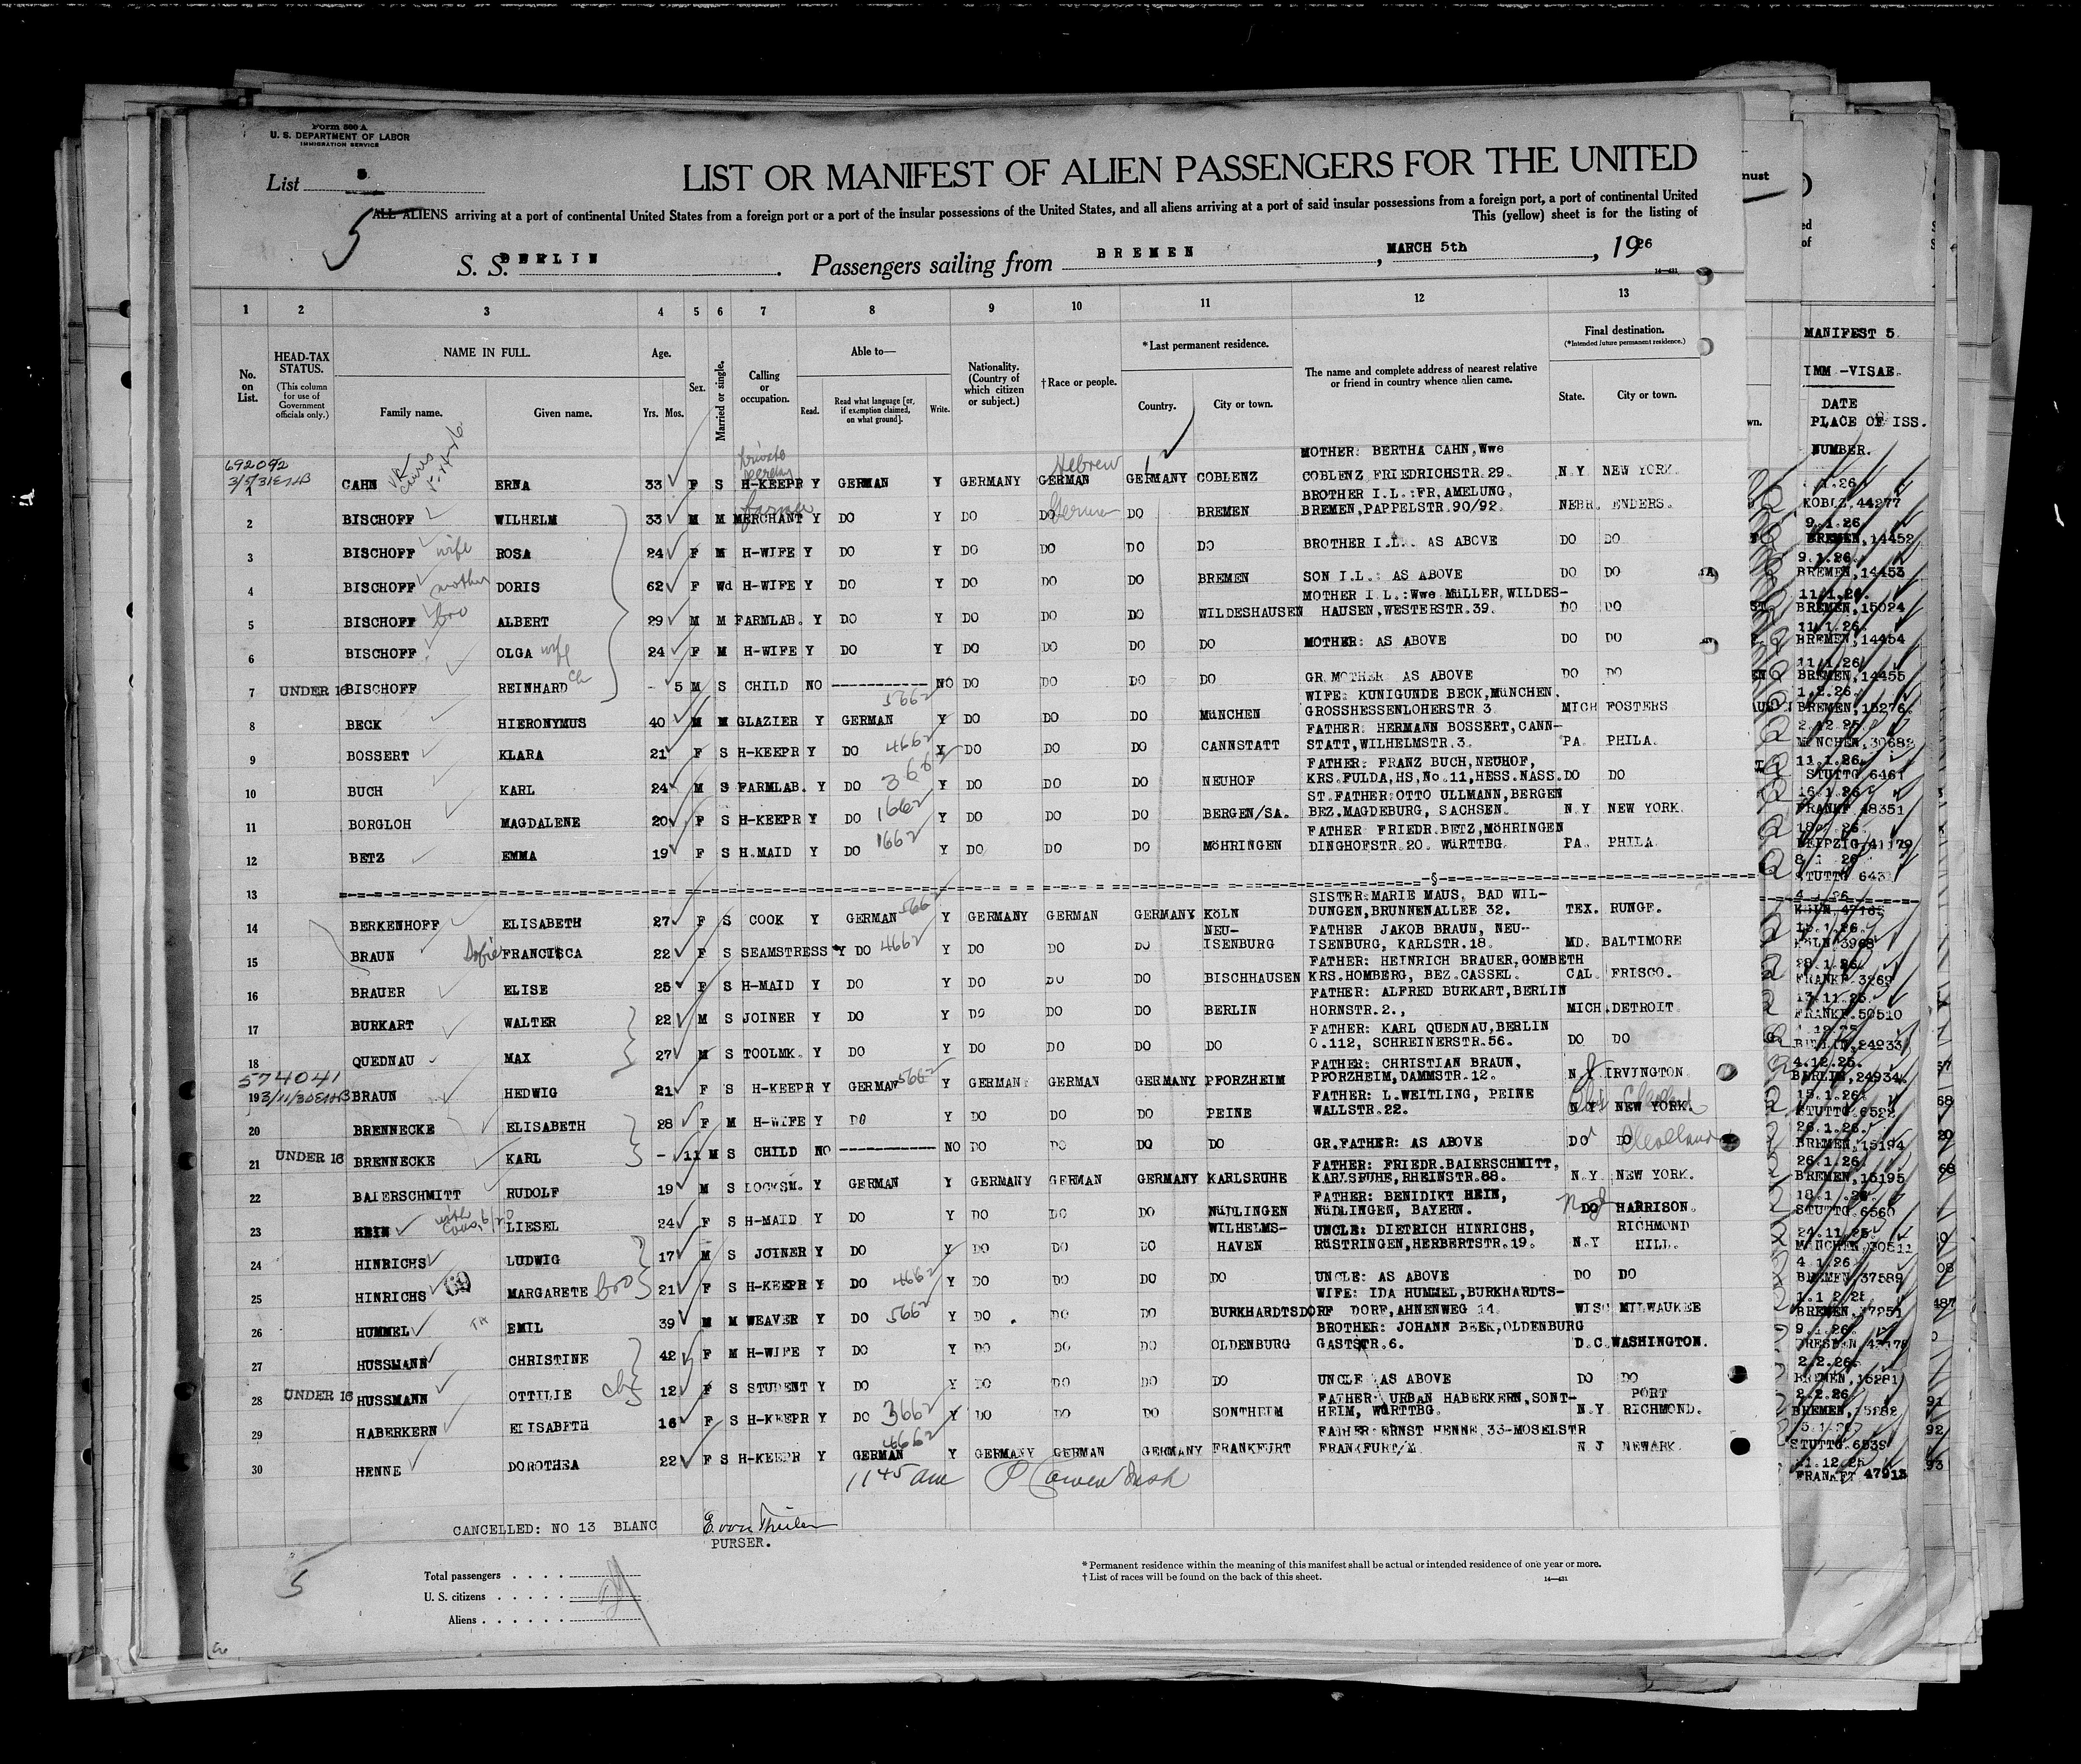 Form 500 A
U. S. DEPARTMENT OF LABOR
IMMIGRATION SERVICE
List 5
LIST OR MANIFEST OF ALIEN PASSENGERS FOR THE UNITED
ALL ALIENS arriving at a port of continental United States from a foreign port or a port of the insular possessions of the United States, and all aliens arriving at a port of said insular possessions from a foreign port, a port of continental United
This (yellow) sheet is for the listing of
5
S. S. BERLIN Passengers sailing from BREMEN, MARCH 5th, 1926
1 2 3 4 5 6 7 8 9 10 11 12 13
No. on List.
HEAD-TAX STATUS. (This column for use of Government officials only.)
NAME IN FULL. Family name. Given name.
Age. Yrs. Mos.
Sex.
Married or single.
Calling or occupation.
Able to— Read. Read what language [or, if exemption claimed, on what ground]. Write.
Nationality. (Country of which citizen or subject.)
†Race or people.
*Last permanent residence. Country. City or town.
The name and complete address of nearest relative or friend in country whence alien came.
Final destination. (*Intended future permanent residence.) State. City or town.
MANIFEST 5.
IMM-VISAE.
DATE
PLACE OF ISS.
NUMBER.
692092
MOTHER: BERTHA CAHN, Wwe
1 CAHN ERNA 33 F S H-KEEPR Y GERMAN Y GERMANY GERMAN Hebrew GERMANY COBLENZ COBLENZ FRIEDRICHSTR.29. N.Y NEW YORK.
BROTHER I.L.:FR.AMELUNG,
2 BISCHOFF WILHELM 33 M M MERCHANT farmer Y DO Y DO DO German DO BREMEN BREMEN,PAPPELSTR.90/92. NEBR. ENDERS.
3 BISCHOFF wife ROSA 24 F M H-WIFE Y DO Y DO DO DO DO BROTHER I.L. AS ABOVE DO DO
4 BISCHOFF mother DORIS 62 F Wd H-WIFE Y DO Y DO DO DO BREMEN SON I.L.: AS ABOVE DO DO
MOTHER I.L.:Wwe MüLLER,WILDES-
5 BISCHOFF bro ALBERT 29 M M FARMLAB. Y DO Y DO DO DO WILDESHAUSEN HAUSEN,WESTERSTR.39. DO DO
6 BISCHOFF OLGA wife 24 F M H-WIFE Y DO Y DO DO DO DO MOTHER: AS ABOVE DO DO
7 UNDER 16 BISCHOFF REINHARD ch - 5 M S CHILD NO ------------ NO DO DO DO DO GR.MOTHER AS ABOVE DO DO
WIFE: KUNIGUNDE BECK,MüNCHEN.
8 BECK HIERONYMUS 40 M M GLAZIER Y GERMAN 5662 Y DO DO DO MüNCHEN GROSSHESSENLOHERSTR.3. MICH FOSTERS
FATHER: HERMANN BOSSERT,CANN-
9 BOSSERT KLARA 21 F S H-KEEPR Y DO 4662 Y DO DO DO CANNSTATT STATT,WILHELMSTR.3. PA. PHILA.
FATHER: FRANZ BUCH,NEUHOF,
10 BUCH KARL 24 M S FARMLAB. Y DO 3662 Y DO DO DO NEUHOF KRS.FULDA,HS,No.11,HESS.NASS. DO DO
ST.FATHER:OTTO ULLMANN,BERGEN
11 BORGLOH MAGDALENE 20 F S H-KEEPR Y DO 1662 Y DO DO DO BERGEN/SA. BEZ.MAGDEBURG, SACHSEN. N.Y NEW YORK.
FATHER FRIEDR.BETZ,MöHRINGEN
12 BETZ EMMA 19 F S H.MAID Y DO 1662 Y DO DO DO MöHRINGEN DINGHOFSTR.20. WüRTTBG. PA. PHILA.
13
SISTER:MARIE MAUS, BAD WIL-
14 BERKENHOFF ELISABETH 27 F S COOK Y GERMAN 5662 Y GERMANY GERMAN GERMANY KöLN DUNGEN,BRUNNENALLEE 32. TEX. RUNGE.
NEU- FATHER JAKOB BRAUN, NEU-
15 BRAUN Sofie FRANCISCA 22 F S SEAMSTRESS Y DO 4662 Y DO DO DO ISENBURG ISENBURG, KARLSTR.18. MD. BALTIMORE
FATHER: HEINRICH BRAUER,GOMBETH
16 BRAUER ELISE 25 F S H-MAID Y DO Y DO DO DO BISCHHAUSEN KRS.HOMBERG, BEZ.CASSEL. CAL. FRISCO.
FATHER: ALFRED BURKART,BERLIN
17 BURKART WALTER 22 M S JOINER Y DO Y DO DO DO BERLIN HORNSTR.2., MICH. DETROIT.
FATHER: KARL QUEDNAU,BERLIN
18 QUEDNAU MAX 27 M S TOOLMK. Y DO Y DO DO DO DO O.112, SCHREINERSTR.56. DO DO
574041
FATHER: CHRISTIAN BRAUN,
19 BRAUN HEDWIG 21 F S H-KEEPR Y GERMAN 5662 Y GERMANY GERMAN GERMANY PFORZHEIM PFORZHEIM,DAMMSTR.12. IRVINGTON
FATHER: L.WEITLING, PEINE
20 BRENNECKE ELISABETH 28 F M H-WIFE Y DO Y DO DO DO PEINE WALLSTR.22. N.Y NEW YORK.
21 UNDER 16 BRENNECKE KARL - 11 M S CHILD NO ------------ NO DO DO DO DO GR.FATHER: AS ABOVE DO DO
FATHER: FRIEDR.BAIERSCHMITT,
22 BAIERSCHMITT RUDOLF 19 M S LOCKSM. Y GERMAN Y GERMANY GERMAN GERMANY KARLSRUHE KARLSRUHE,RHEINSTR.88. N.Y NEW YORK.
FATHER: BENIDIKT HEIN,
23 HEIN LIESEL 24 F S H-MAID Y DO Y DO DO DO NüDLINGEN NüDLINGEN, BAYERN. DO HARRISON.
WILHELMS- UNCLE: DIETRICH HINRICHS, RICHMOND
24 HINRICHS LUDWIG 17 M S JOINER Y DO Y DO DO DO HAVEN RüSTRINGEN,HERBERTSTR.19. N.Y HILL.
25 HINRICHS MARGARETE 21 F S H-KEEPR Y DO 4662 Y DO DO DO DO UNCLE: AS ABOVE DO DO
WIFE: IDA HUMMEL,BURKHARDTS-
26 HUMMEL EMIL 39 M M WEAVER Y DO 5662 Y DO DO DO BURKHARDTSDORF DORF,AHNENWEG 14. WISC MILWAUKEE
BROTHER: JOHANN BEEK,OLDENBURG
27 HUSSMANN CHRISTINE 42 F M H-WIFE Y DO Y DO DO DO OLDENBURG GASTSTR.6. D.C. WASHINGTON.
28 UNDER 16 HUSSMANN OTTILIE 12 F S STUDENT Y DO Y DO DO DO DO UNCLE AS ABOVE DO DO
FATHER: URBAN HABERKERN,SONT- PORT
29 HABERKERN ELISABETH 16 F S H-KEEPR Y DO 3662 Y DO DO DO SONTHEIM HEIM, WüRTTBG. N.Y RICHMOND.
FATHER:ERNST HENNE,33-MOSELSTR
30 HENNE DOROTHEA 22 F S H-KEEPR Y GERMAN 4662 Y GERMANY GERMAN GERMANY FRANKFURT FRANKFURT/M. N J NEWARK.
1145 am
CANCELLED: NO 13 BLANC
PURSER.
5
Total passengers
U. S. citizens
Aliens
* Permanent residence within the meaning of this manifest shall be actual or intended residence of one year or more.
† List of races will be found on the back of this sheet.